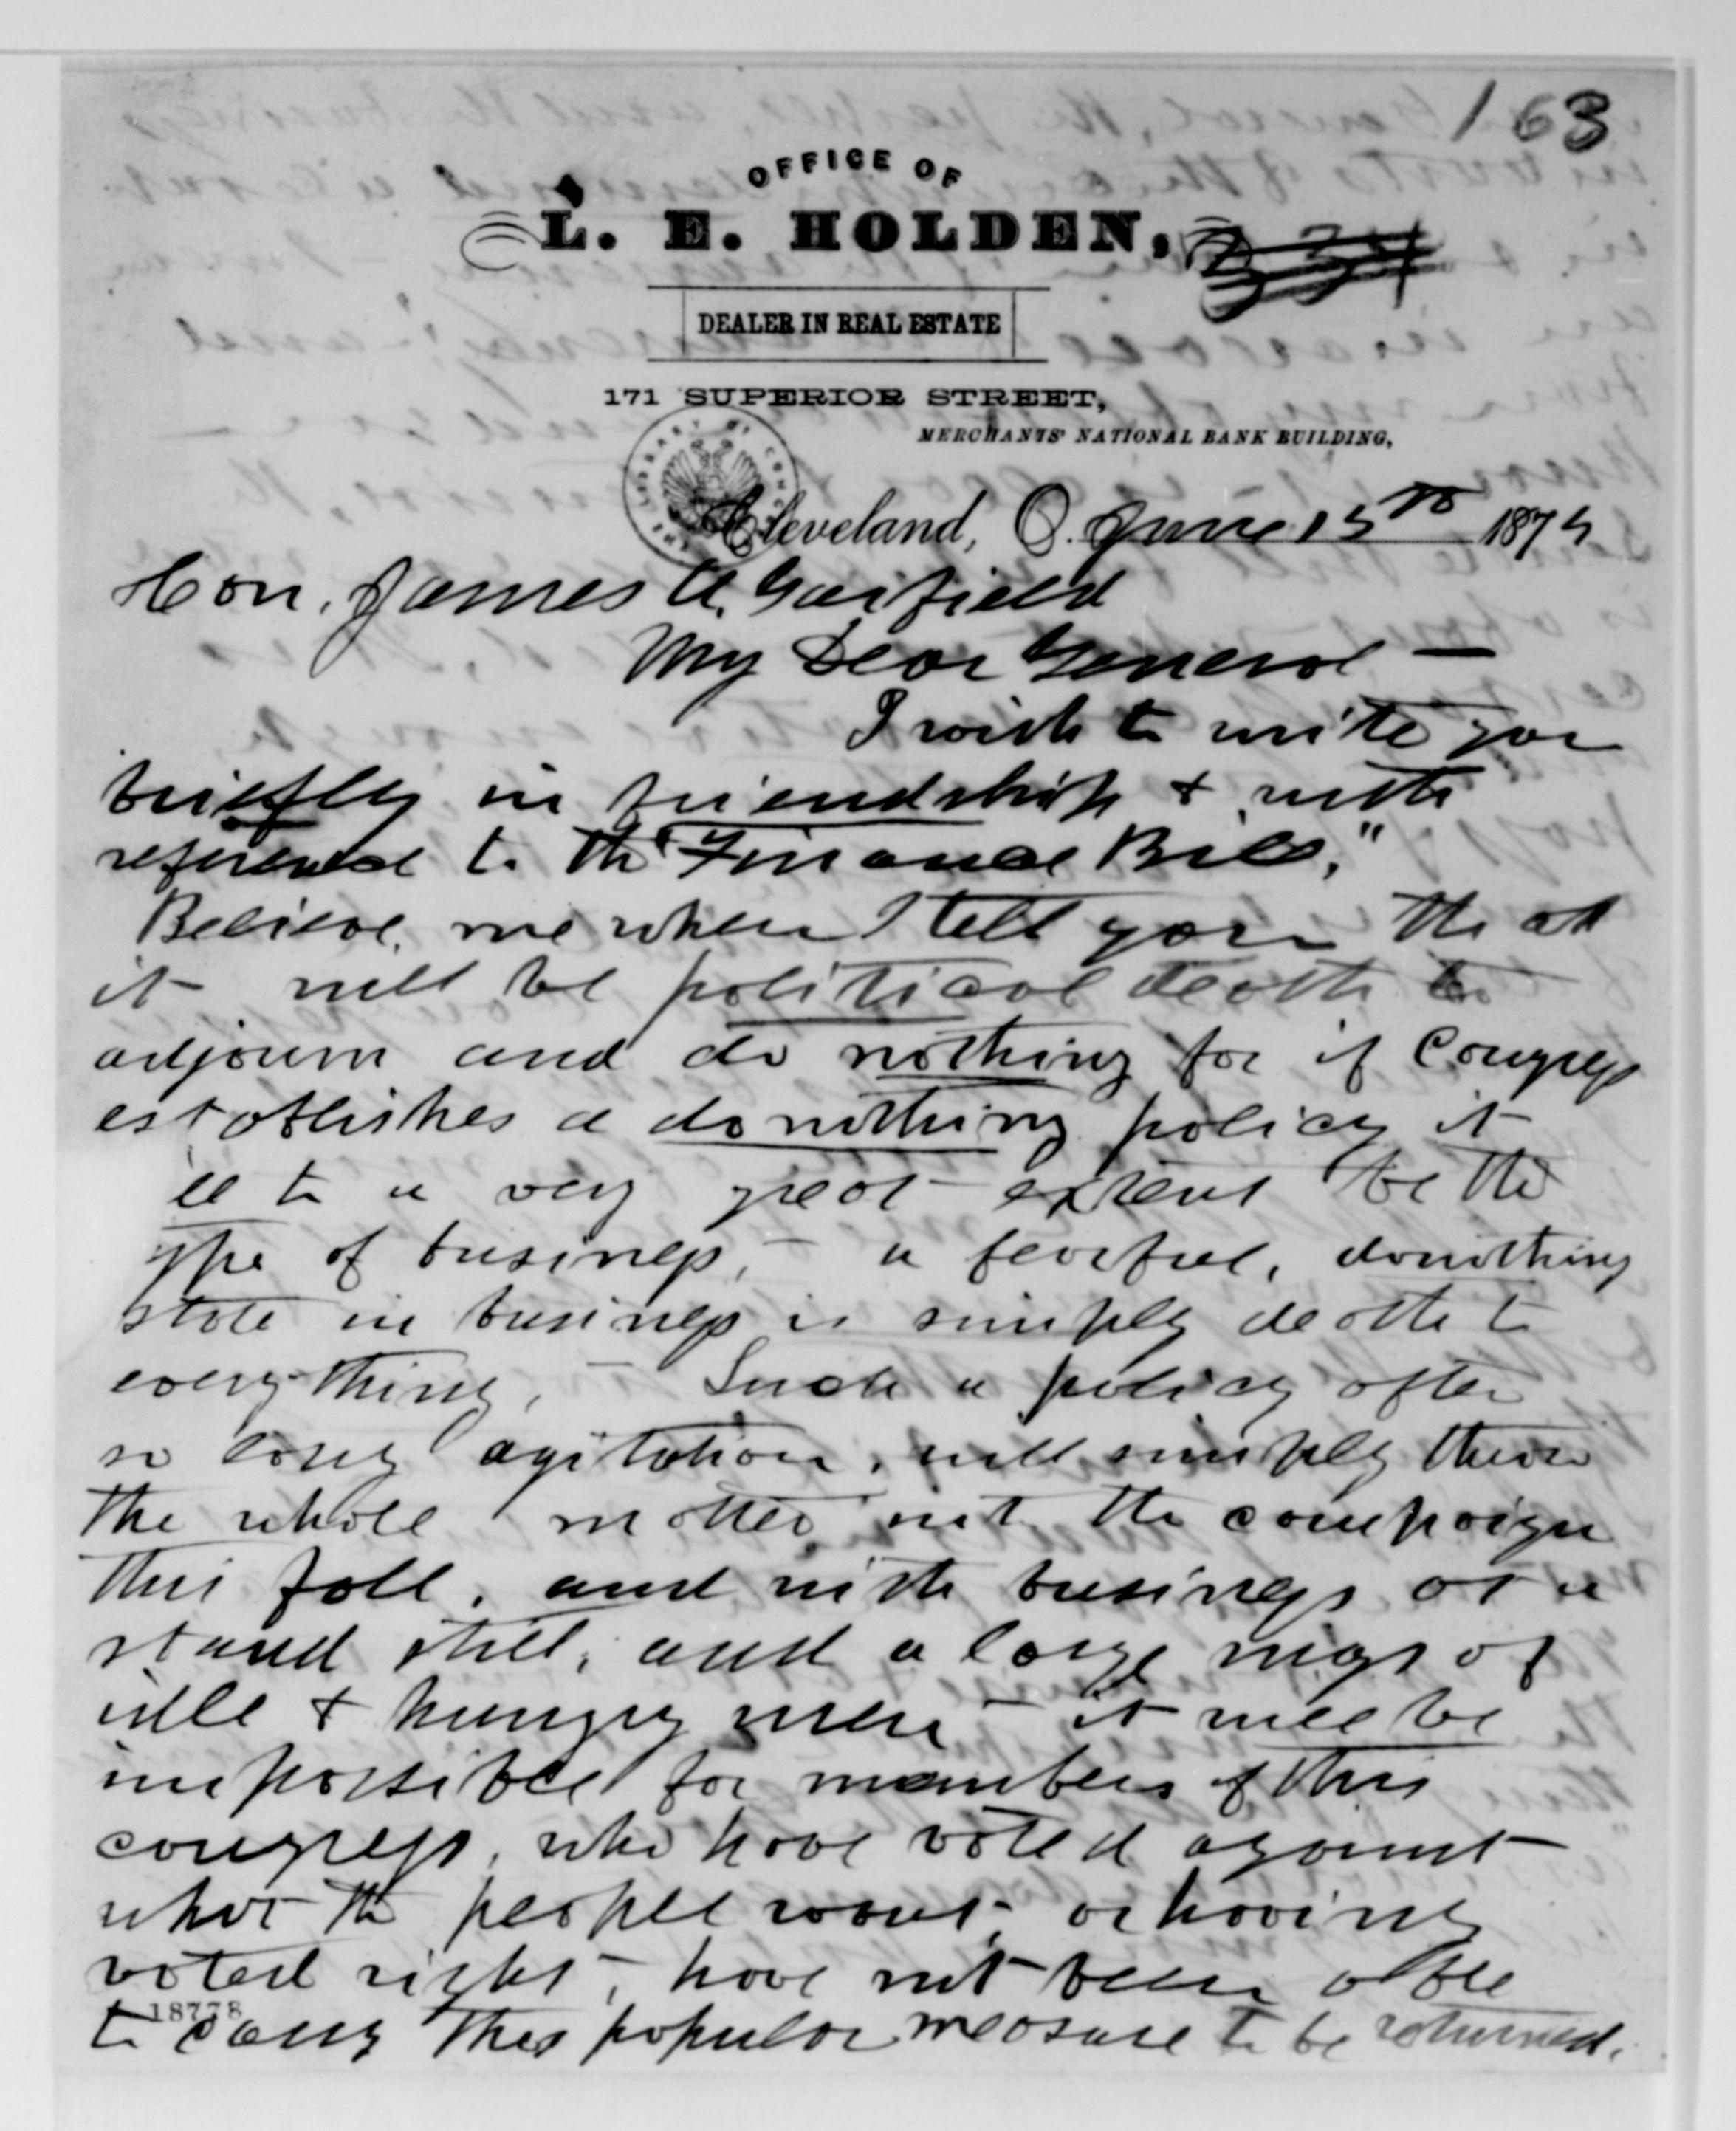 163
OFFICE OF
L. E. HOLDEN,
DEALER IN REAL ESTATE
171 SUPERIOR STREET,
MERCHANTS' NATIONAL BANK BUILDING,
Cleveland, O. June 15th 1874
Hon. James A. Garfield
My Dear General —
I wish to write you
briefly in friendship & with
reference to the "Finance Bill,"
Believe me when I tell you that
it will be political death to
adjourn and do nothing for if Congress
establishes a do nothing policy it
ll to a very great extent be the
ype of business, — a fearful, donothing
state in business is simply death to
everything, — Such a policy after
so long agitation, will simply throw
the whole matter into the campaign
this fall, and with business at a
stand still, and a large mass of
idle & hungry men — it will be
impossible for members of this
congress, who have voted against
what the people want, or having
voted right, have not been able
to carry this popular measure to be returned.
18778